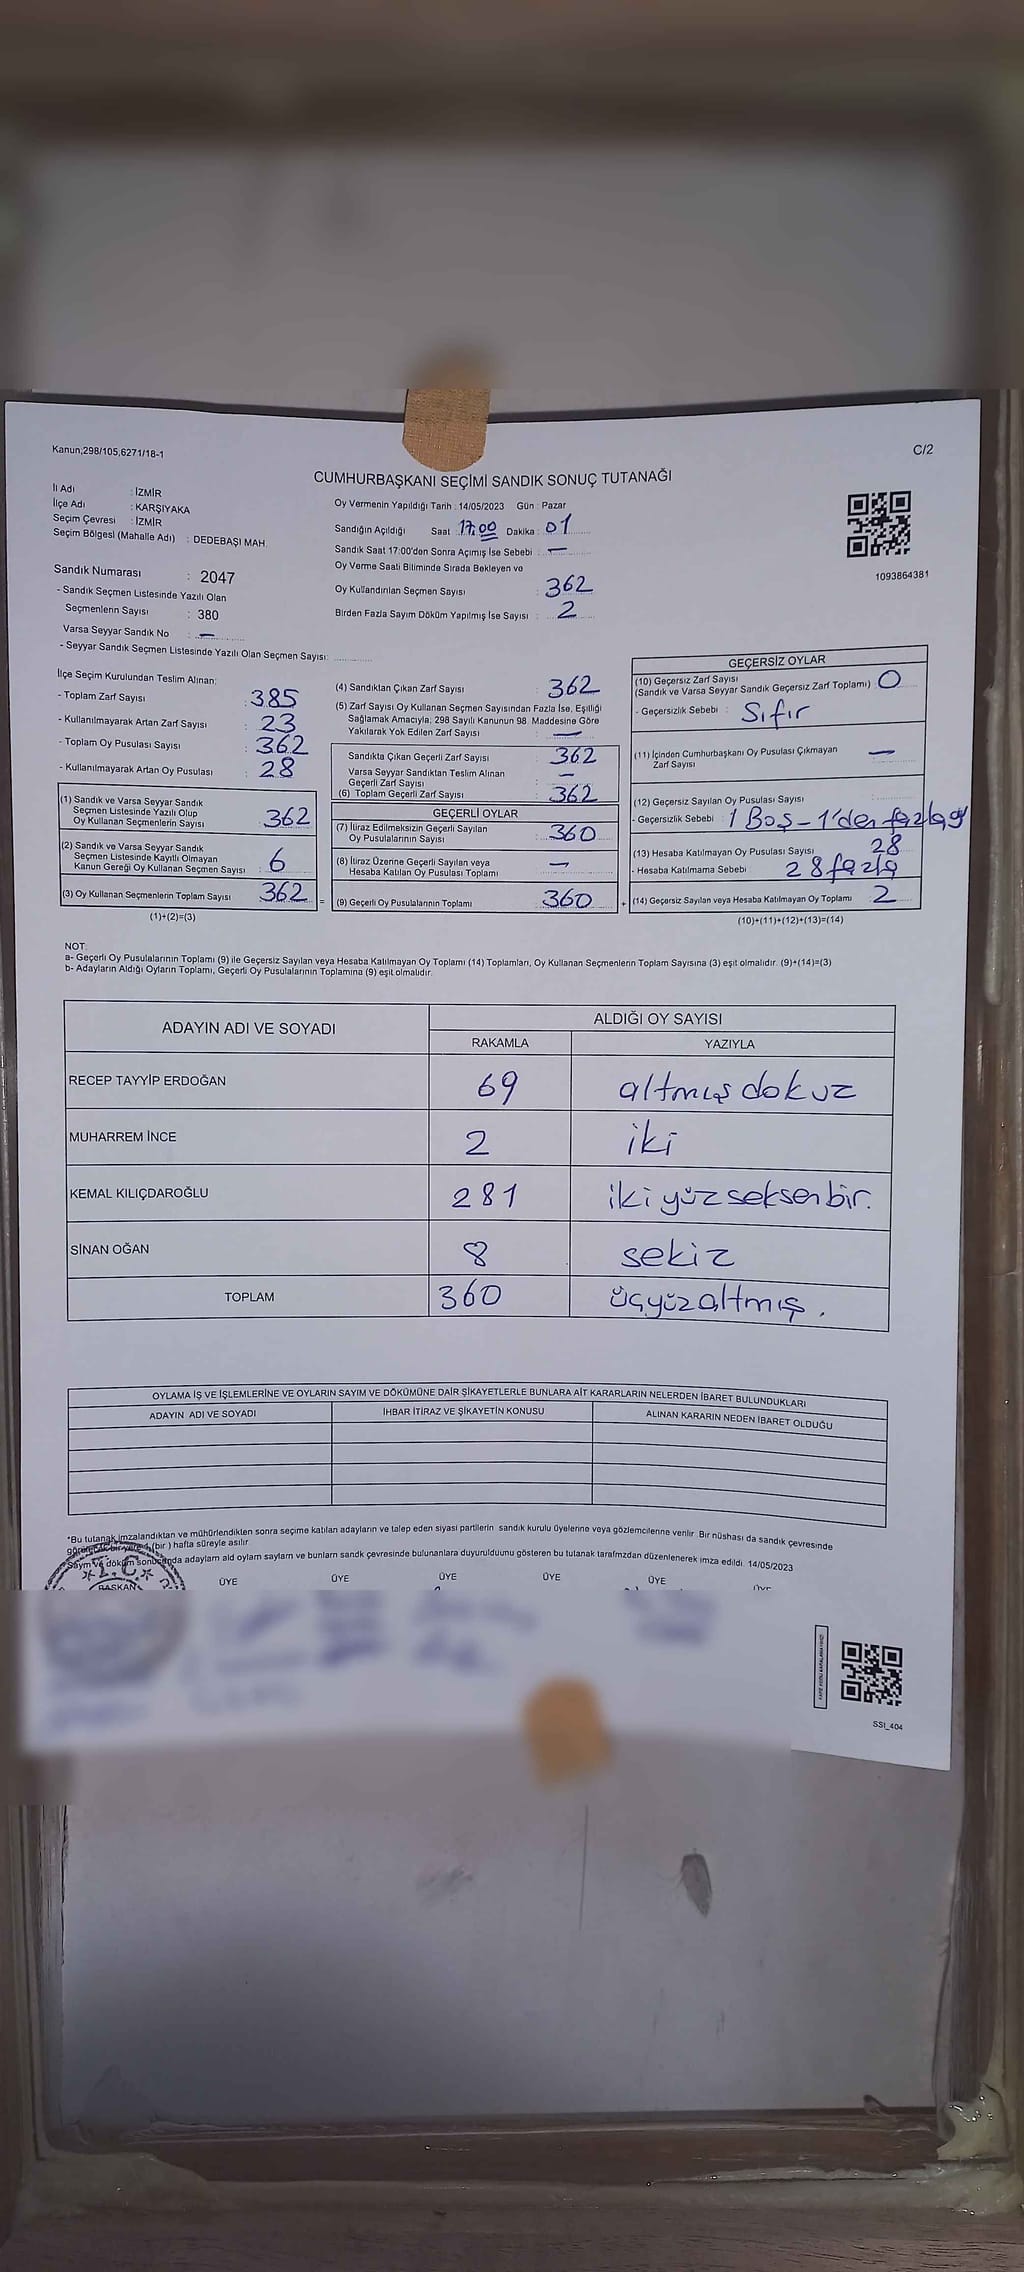 Kanun;298/105,6271/18-1
C/2
CUMHURBAŞKANI SEÇİMİ SANDIK SONUÇ TUTANAĞI
İl Adı : İZMİR
İlçe Adı : KARŞIYAKA
Seçim Çevresi : İZMİR
Seçim Bölgesi (Mahalle Adı) : DEDEBAŞI MAH.
Sandık Numarası : 2047
- Sandık Seçmen Listesinde Yazılı Olan
Seçmenlerin Sayısı : 380
Varsa Seyyar Sandık No : —
- Seyyar Sandık Seçmen Listesinde Yazılı Olan Seçmen Sayısı:
Oy Vermenin Yapıldığı Tarih : 14/05/2023 Gün : Pazar
Sandığın Açıldığı Saat : 17.00 Dakika : 01
Sandık Saat 17:00'den Sonra Açımış İse Sebebi : —
Oy Verme Saati Bitiminde Sırada Bekleyen ve
Oy Kullandırılan Seçmen Sayısı : 362
Birden Fazla Sayım Döküm Yapılmış İse Sayısı : 2
1093864381
İlçe Seçim Kurulundan Teslim Alınan:
- Toplam Zarf Sayısı : 385
- Kullanılmayarak Artan Zarf Sayısı : 23
- Toplam Oy Pusulası Sayısı : 362
- Kullanılmayarak Artan Oy Pusulası : 28
(1) Sandık ve Varsa Seyyar Sandık
Seçmen Listesinde Yazılı Olup
Oy Kullanan Seçmenlerin Sayısı : 362
(2) Sandık ve Varsa Seyyar Sandık
Seçmen Listesinde Kayıtlı Olmayan
Kanun Gereği Oy Kullanan Seçmen Sayısı : 6
(3) Oy Kullanan Seçmenlerin Toplam Sayısı : 362 =
(1)+(2)=(3)
(4) Sandıktan Çıkan Zarf Sayısı : 362
(5) Zarf Sayısı Oy Kullanan Seçmen Sayısından Fazla İse, Eşitliği
Sağlamak Amacıyla; 298 Sayılı Kanunun 98. Maddesine Göre
Yakılarak Yok Edilen Zarf Sayısı : —
Sandıkta Çıkan Geçerli Zarf Sayısı : 362
Varsa Seyyar Sandıktan Teslim Alınan
Geçerli Zarf Sayısı : —
(6) Toplam Geçerli Zarf Sayısı : 362
GEÇERLİ OYLAR
(7) İtiraz Edilmeksizin Geçerli Sayılan
Oy Pusulalarının Sayısı : 360
(8) İtiraz Üzerine Geçerli Sayılan veya
Hesaba Katılan Oy Pusulası Toplamı : —
(9) Geçerli Oy Pusulalarının Toplamı : 360 +
GEÇERSİZ OYLAR
(10) Geçersiz Zarf Sayısı
(Sandık ve Varsa Seyyar Sandık Geçersiz Zarf Toplamı) : 0
- Geçersizlik Sebebi : Sıfır
(11) İçinden Cumhurbaşkanı Oy Pusulası Çıkmayan
Zarf Sayısı : —
(12) Geçersiz Sayılan Oy Pusulası Sayısı :
- Geçersizlik Sebebi : 1 Boş - 1'den fazla oy
(13) Hesaba Katılmayan Oy Pusulası Sayısı : 28
- Hesaba Katılmama Sebebi : 28 fazla
(14) Geçersiz Sayılan veya Hesaba Katılmayan Oy Toplamı : 2
(10)+(11)+(12)+(13)=(14)
NOT:
a- Geçerli Oy Pusulalarının Toplamı (9) ile Geçersiz Sayılan veya Hesaba Katılmayan Oy Toplamı (14) Toplamları, Oy Kullanan Seçmenlerin Toplam Sayısına (3) eşit olmalıdır. (9)+(14)=(3)
b- Adayların Aldığı Oyların Toplamı, Geçerli Oy Pusulalarının Toplamına (9) eşit olmalıdır.
ADAYIN ADI VE SOYADI
ALDIĞI OY SAYISI
RAKAMLA YAZIYLA
RECEP TAYYİP ERDOĞAN 69 altmış dokuz
MUHARREM İNCE 2 iki
KEMAL KILIÇDAROĞLU 281 iki yüz seksen bir.
SİNAN OĞAN 8 sekiz
TOPLAM 360 üçyüzaltmış.
OYLAMA İŞ VE İŞLEMLERİNE VE OYLARIN SAYIM VE DÖKÜMÜNE DAİR ŞİKAYETLERLE BUNLARA AİT KARARLARIN NELERDEN İBARET BULUNDUKLARI
ADAYIN ADI VE SOYADI İHBAR İTİRAZ VE ŞİKAYETİN KONUSU ALINAN KARARIN NEDEN İBARET OLDUĞU
*Bu tutanak imzalandıktan ve mühürlendikten sonra seçime katılan adayların ve talep eden siyasi partilerin sandık kurulu üyelerine veya gözlemcilerine verilir. Bir nüshası da sandık çevresinde
bir yere 1 (bir ) hafta süreyle asılır.
Sayım ve döküm sonucunda adayların ald oyların sayların ve bunların sandk çevresinde bulunanlara duyurulduunu gösteren bu tutanak tarafmzdan düzenlenerek imza edildi. 14/05/2023
T.C.
BAŞKAN ÜYE ÜYE ÜYE ÜYE ÜYE
SSI_404